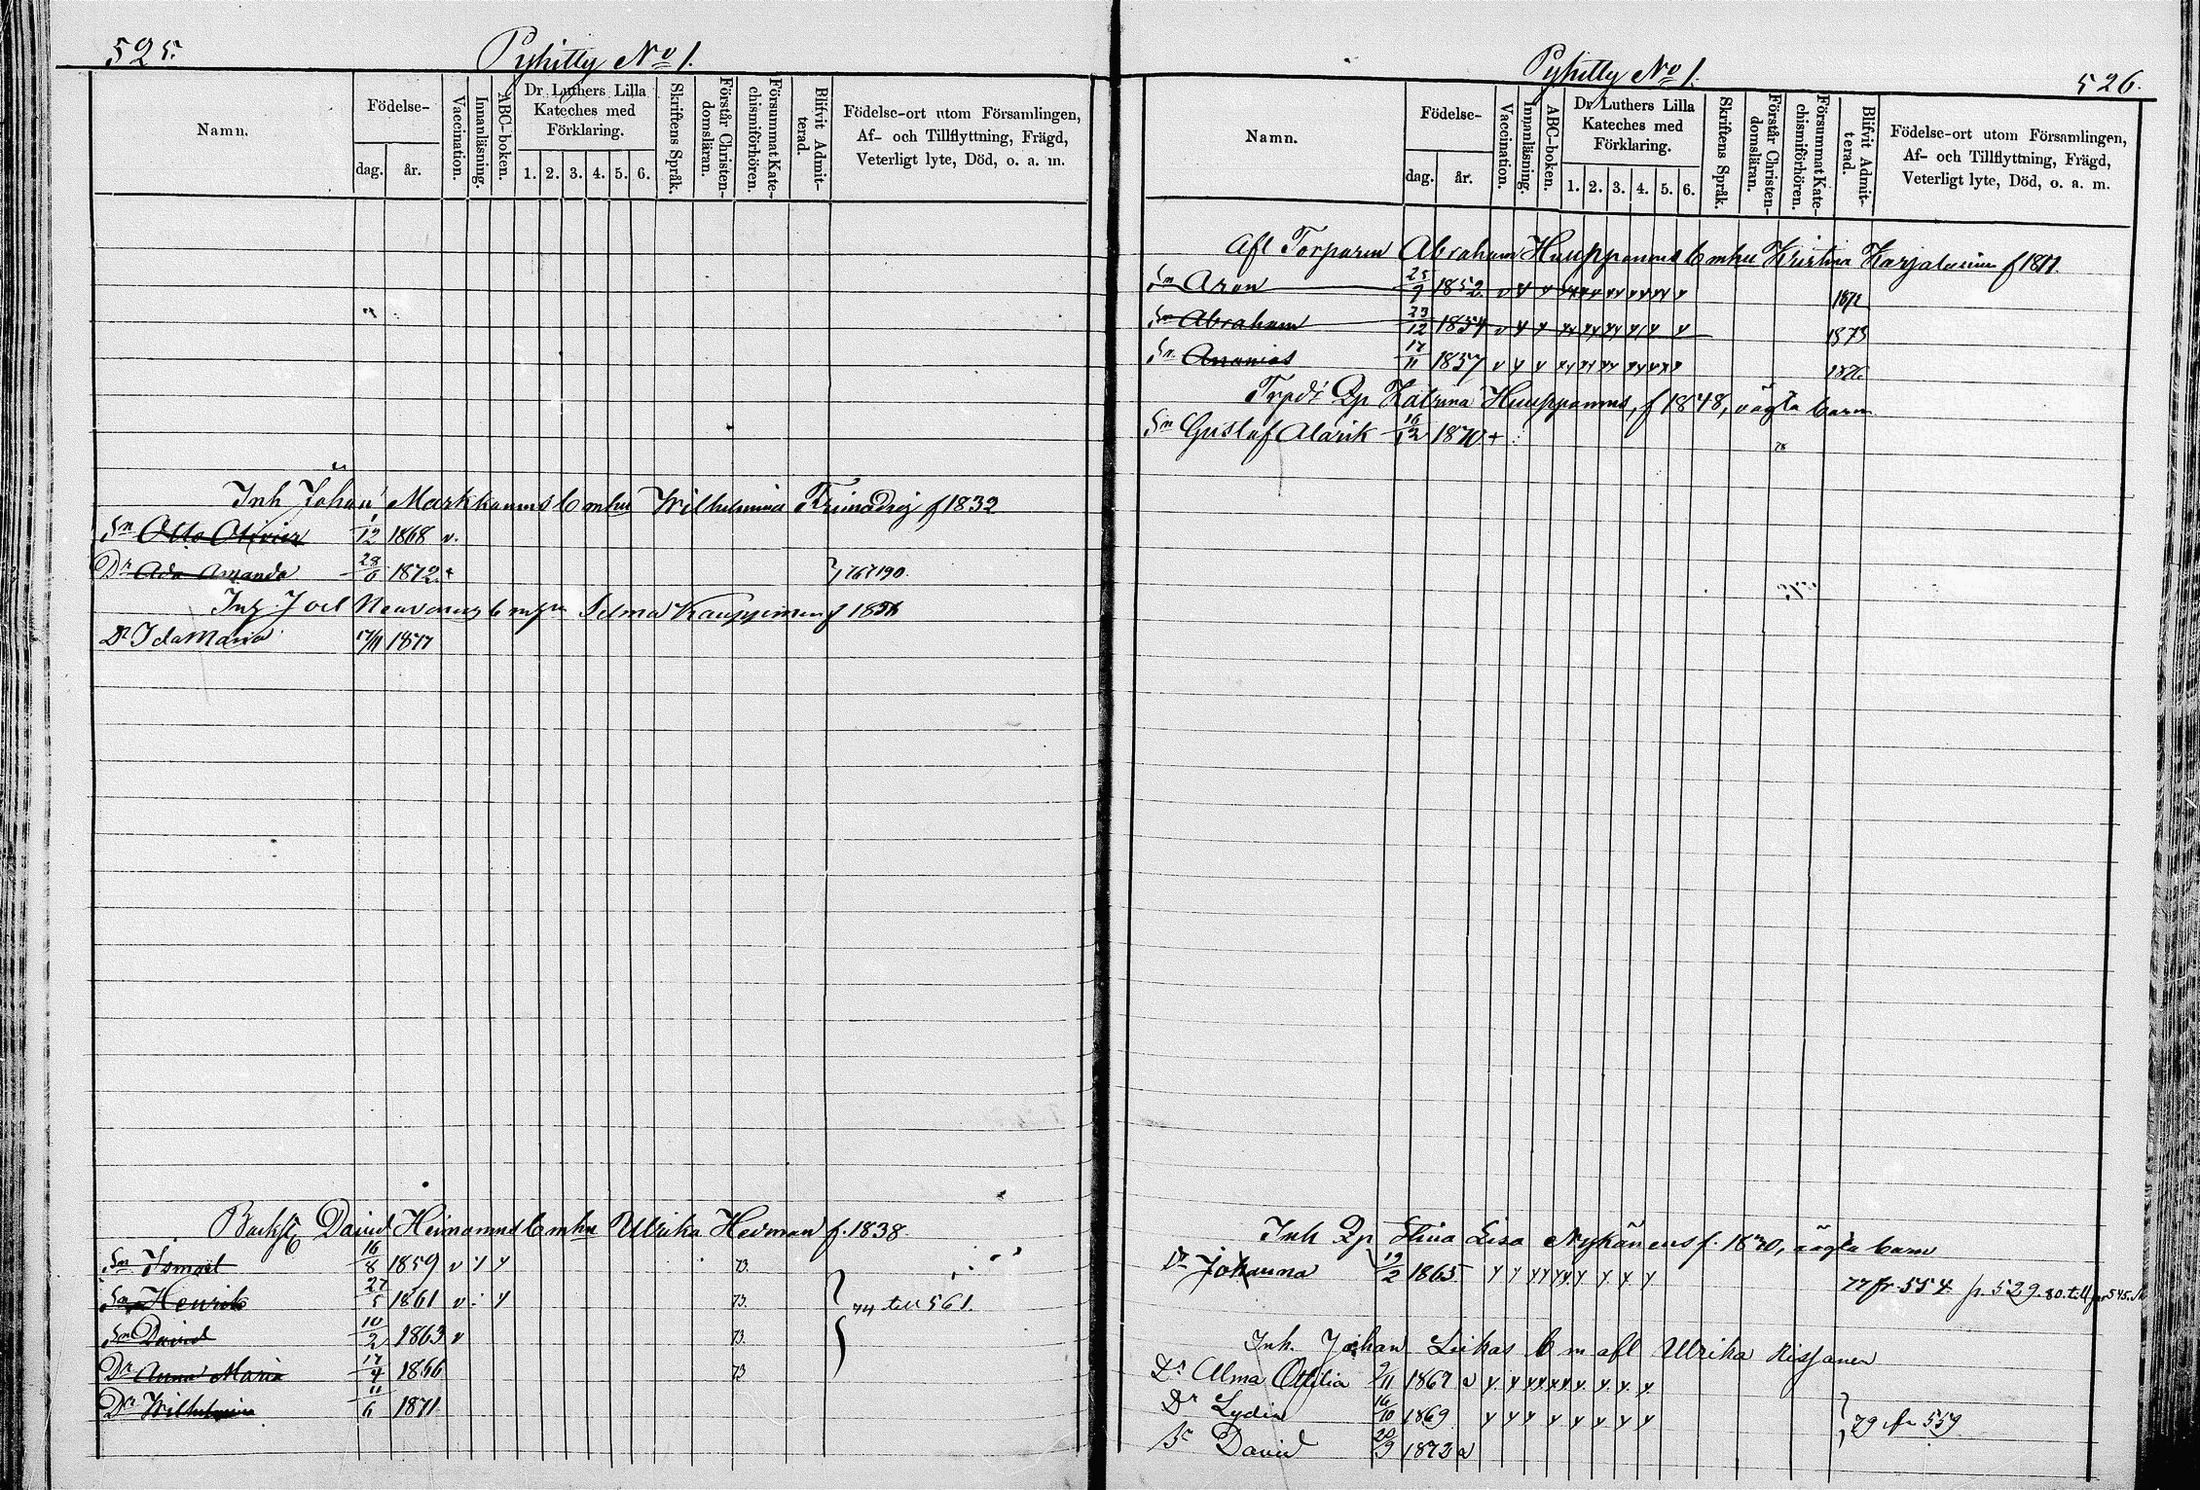 525.
Pyhitty No 1.
Namn.
Födelse-
dag.
år.
Vaccination.
Innanläsning.
ABC-boken.
Dr Luthers Lilla
Kateches med
Förklaring.
1. 2. 3. 4. 5. 6.
Skriftens Språk.
Förstår Christen-
domsläran.
Försummat Kate-
chismiförhören.
Blifvit Admit-
terad.
Födelse-ort utom Församlingen,
Af- och Tillflyttning, Frägd,
Veterligt lyte, Död, o. a. m.
Inh Johan Markkanens b m hu Wilhelmina f 1832
Sn Otto Olivier 1/12 1868 v.
Dr Ada Amanda 28/6 1872 +
Joel b m Selma Kauppinen f 1856
Dr Ida Maria 17/11 1877
Backst David Heimonens b m hu Ulrika Hedman f. 1838.
Sn Ismael 16/8 1859 v y y 73.
Sn Henrik 27/5 1861 v y 73. 74 till 561.
Sn David 10/2 1863 v 73.
Dr Anna Maria 17/4 1866 73
Dr Wilhelmina 11/6 1871
Pyhitty No 1.
526.
Namn.
Födelse-
dag.
år.
Vaccination.
Innanläsning.
ABC-boken.
Dr Luthers Lilla
Kateches med
Förklaring.
1. 2. 3. 4. 5. 6.
Skriftens Språk.
Förstår Christen-
domsläran.
Försummat Kate-
chismiförhören.
Blifvit Admit-
terad.
Födelse-ort utom Församlingen,
Af- och Tillflyttning, Frägd,
Veterligt lyte, Död, o. a. m.
Afl Torparen Abraham Huuppanens b m hu Kristina Karjalainen f 1811.
Sn Aron 25/9 1852
Sn Abraham 23/12 1854 1873
Sn Ananias 17/11 1857 1876
Qp Katrina Huuppanens, f 1848, oägta barn
Sn Gustaf Alarik 16/12 1870 +
Inh Qp Stina Lisa Nykänens f. 1840, oägta barn
Dr Johanna 19/2 1865 77 fr 554. p. 529. 80. till
Inh. Johan Lukas b m afl Ulrika Rissanen
Dr Alma Ottilia 2/11 1867 v
Dr Lydia 16/10 1869 79 fr 559
Sn David 20/9 1872 v